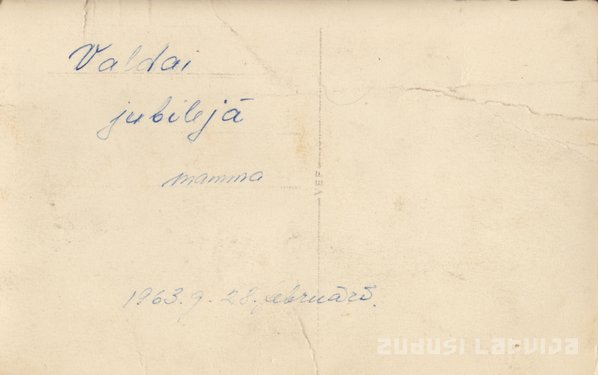 Valdai
jubilejā
mamma
VEF
1963. g. 28. februārī.
zudusi Latvija